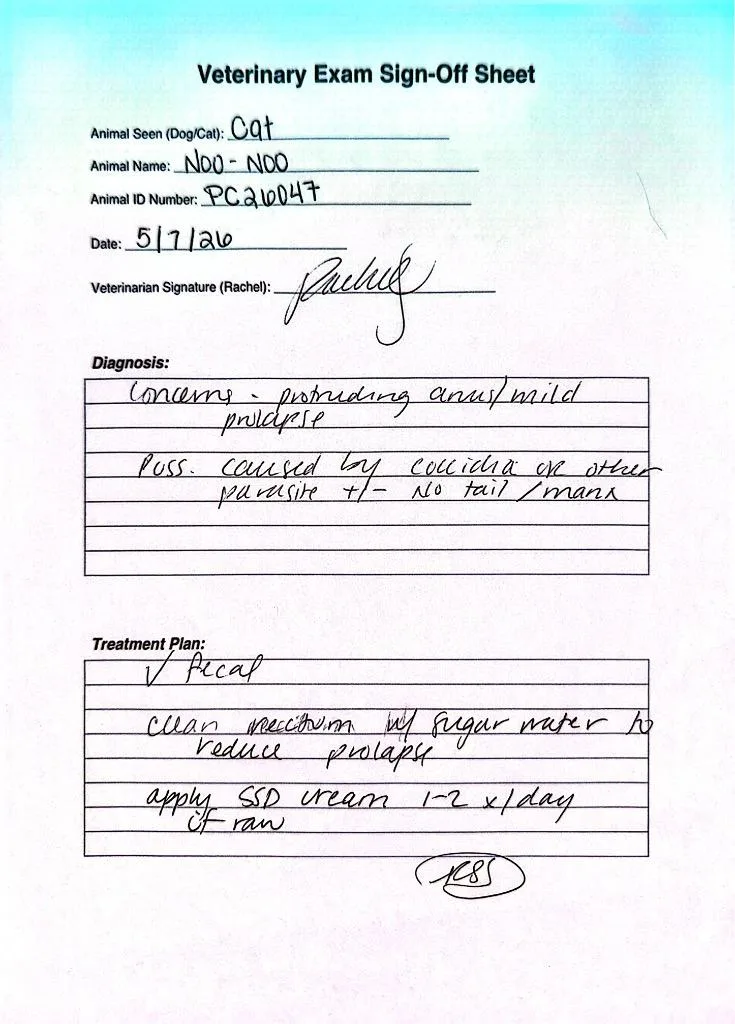 Veterinary Exam Sign-Off Sheet
Animal Seen (Dog/Cat): Cat
Animal Name: Noo-Noo
Animal ID Number: PC26047
Date: 5/7/26
Veterinarian Signature (Rachel): Rachel
Diagnosis:
Concerns - protruding anus/mild
prolapse
Poss. caused by coccidia or other
parasite +/- No tail/manx
Treatment Plan:
✓ fecal
clean rectum w/ sugar water to
reduce prolapse
apply SSD cream 1-2 x/day
if raw